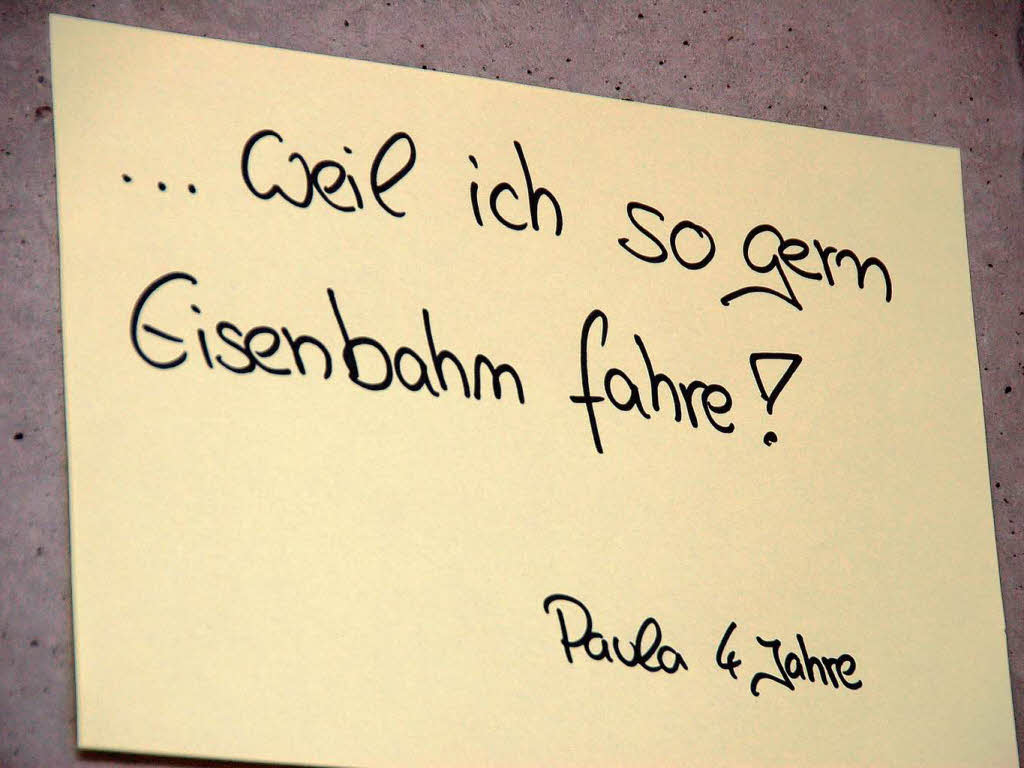 ... weil ich so gern
Eisenbahn fahre!
Paula 4 Jahre